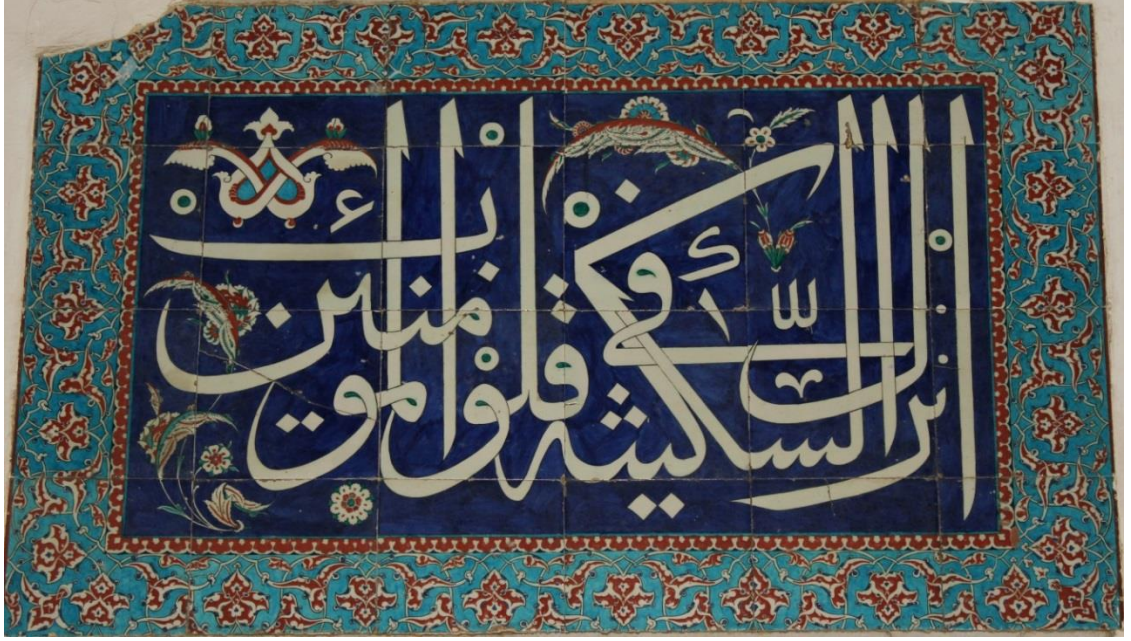 انزل السكينة فى قلوب المؤمنين